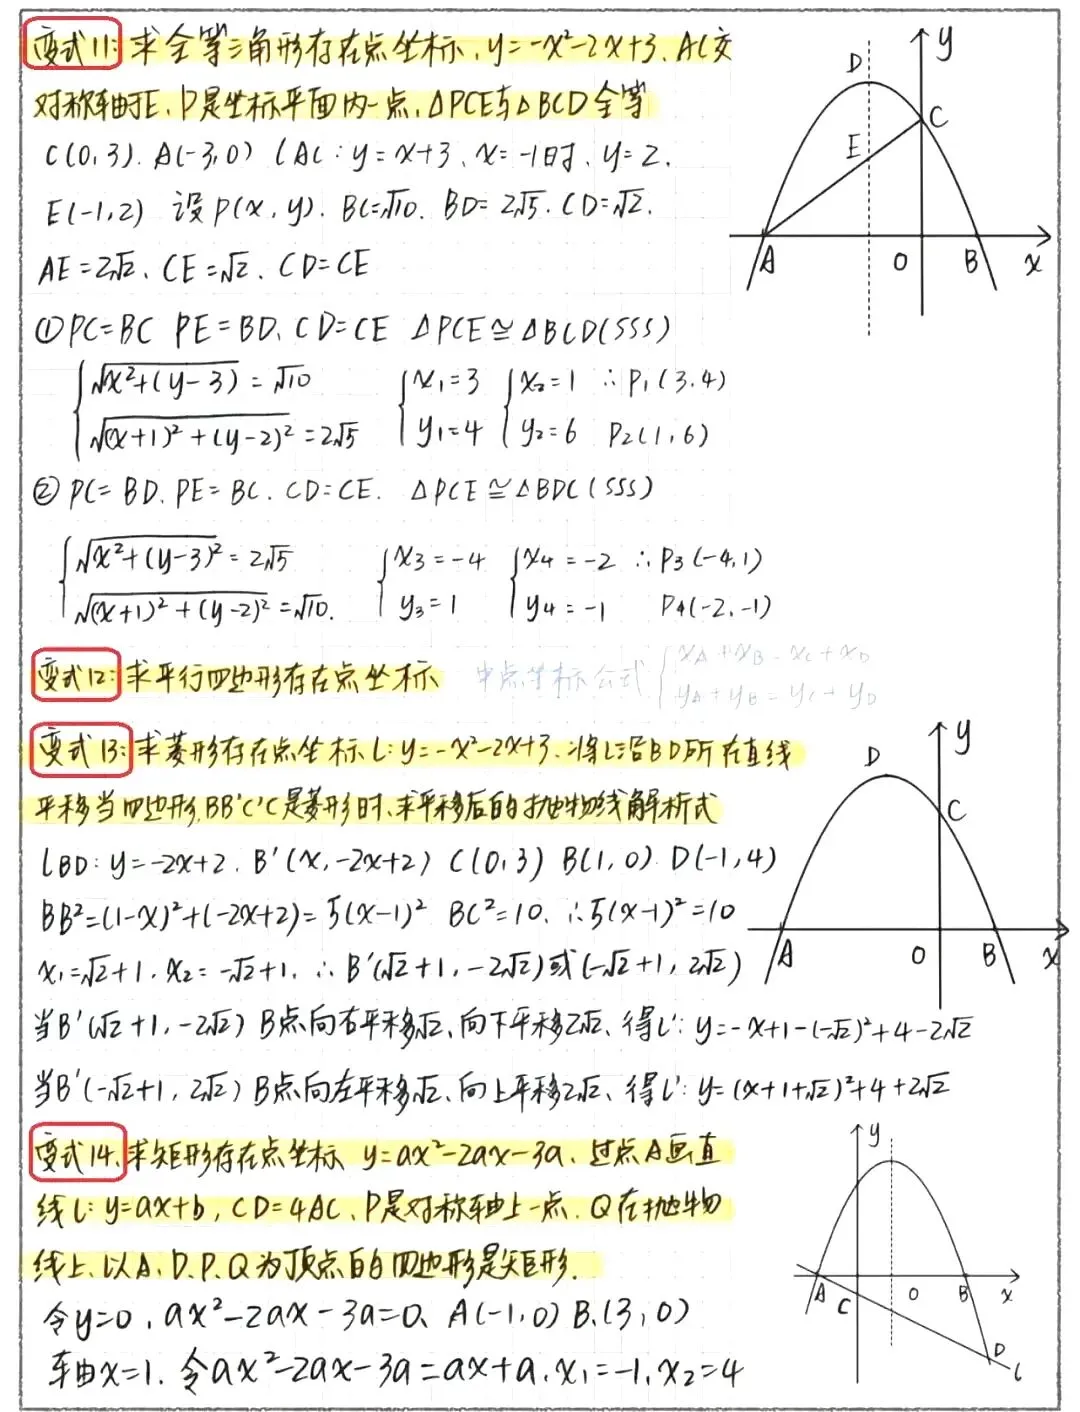 变式11: 求全等三角形存在点坐标, y=-x²-2x+3. AC交
对称轴于E, P是坐标平面内一点, △PCE与△BCD全等
C(0,3). A(-3,0) lAC: y=x+3、x=-1时、y=2.
E(-1,2) 设P(x,y). BC=√10. BD=2√5. CD=√2.
AE=2√2、CE=√2、CD=CE
①PC=BC PE=BD、CD=CE △PCE≅△BCD(SSS)
√x²+(y-3)=√10 x₁=3 x₂=1 ∴P₁(3.4)
√(x+1)²+(y-2)²=2√5 y₁=4 y₂=6 P2(1,6)
②PC=BD、PE=BC. CD=CE. △PCE≅△BDC(SSS)
√x²+(y-3)²=2√5 x₃=-4 x₄=-2 ∴P₃(-4,1)
√(x+1)²+(y-2)²=√10. y₃=1 y₄=-1 P4(-2,-1)
变式12: 求平行四边形存在点坐标 中点坐标公式 xA+xB=xC+xD
yA+yB=yC+yD
变式13: 求菱形存在点坐标L: y=-x²-2x+3、将L沿BD所在直线
平移当四边形BB'C'C是菱形时、求平移后的抛物线解析式
lBD: y=-2x+2. B'(x,-2x+2) C(0,3) B(1,0) D(-1,4)
BB²=(1-x)²+(-2x+2)=5(x-1)² BC²=10、∴5(x-1)²=10
x₁=√2+1、x₂=-√2+1、∴B'(√2+1,-2√2)或(-√2+1,2√2)
当B'(√2+1,-2√2) B点向右平移√2、向下平移2√2、得L': y=-x+1-(-√2)²+4-2√2
当B'(-√2+1,2√2) B点向左平移√2、向上平移2√2、得L': y=(x+1+√2)²+4+2√2
变式14、求矩形存在点坐标 y=ax²-2ax-3a、过点A画直
线L: y=ax+b, CD=4AC、P是对称轴上一点、Q在抛物
线上、以A、D、P、Q为顶点的四边形是矩形.
令y=0, ax²-2ax-3a=0、A(-1,0) B.(3,0)
车由x=1. 令ax²-2ax-3a=ax+a、x₁=-1、x₂=4
y
D
C
E
A
O
B
x
y
D
C
A
O
B
x
y
A
C
O
B
x
D
L